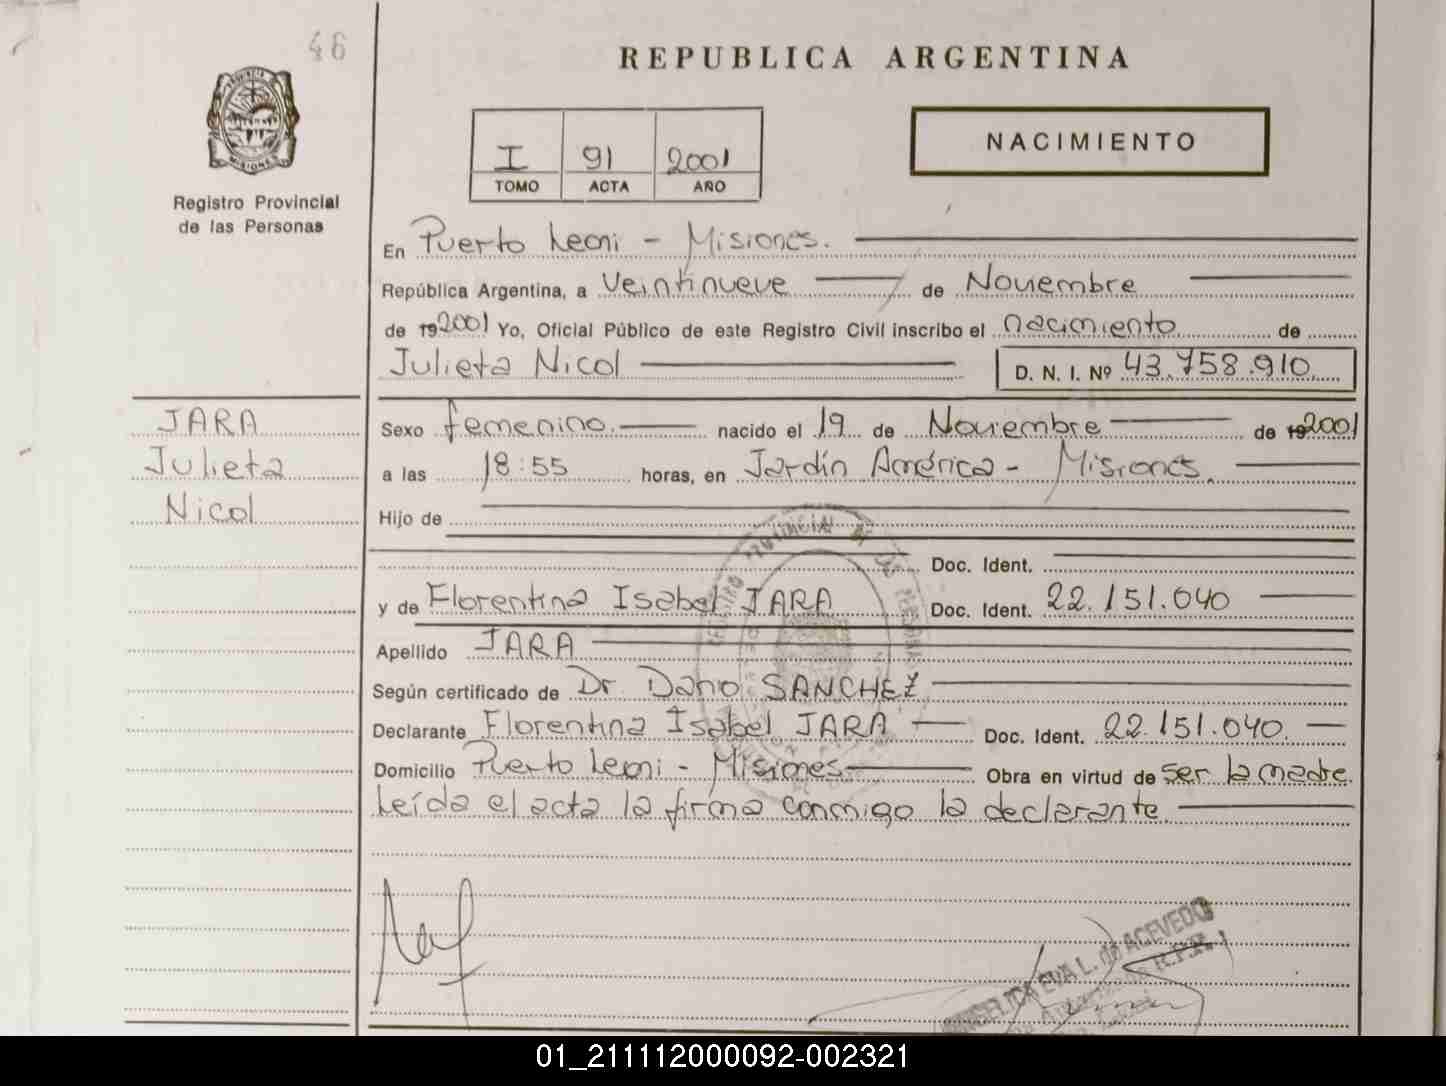 46
REPUBLICA ARGENTINA
NACIMIENTO
I 91 2001
TOMO ACTA AÑO
MISIONES
Registro Provincial
de las Personas
En Puerto Leoni - Misiones.
República Argentina, a Veintinueve de Noviembre
de 19 2001 Yo, Oficial Público de este Registro Civil inscribo el nacimiento de
Julieta Nicol D. N. I. Nº 43.758.910
JARA
Julieta
Nicol
Sexo femenino. nacido el 19 de Noviembre de 19 2001
a las 18:55 horas, en Jardín América - Misiones.
Hijo de
Doc. Ident.
y de Florentina Isabel JARA Doc. Ident. 22.151.040
Apellido JARA
Según certificado de Dr. Dario SANCHEZ
Declarante Florentina Isabel JARA Doc. Ident. 22.151.040.
Domicilio Puerto Leoni - Misiones Obra en virtud de ser la madre.
Leída el acta la firma conmigo la declarante
REGISTRO PROVINCIAL DE LAS PERSONAS
ANGELICA EVA L. de ACEVEDO
R.P.P.
01_211112000092-002321